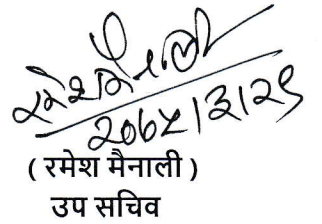 रमेश मैनाली
२०७५।३।२९
( रमेश मैनाली )
उप सचिव